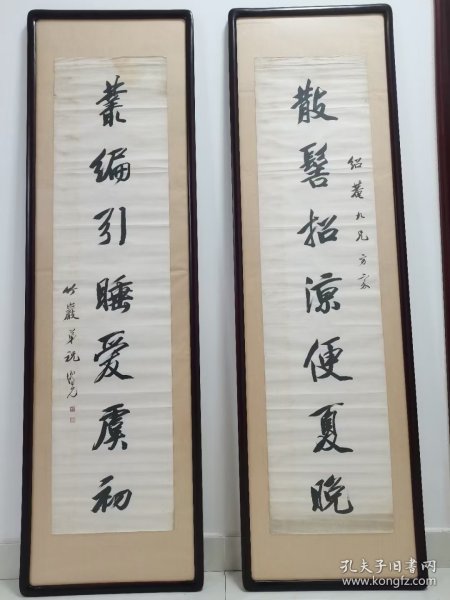 散髻招涼便夏晚
紹菴九兄方家
叢編引睡爱虞初
竹巖弟祝
孔夫子旧书网
www.kongfz.com